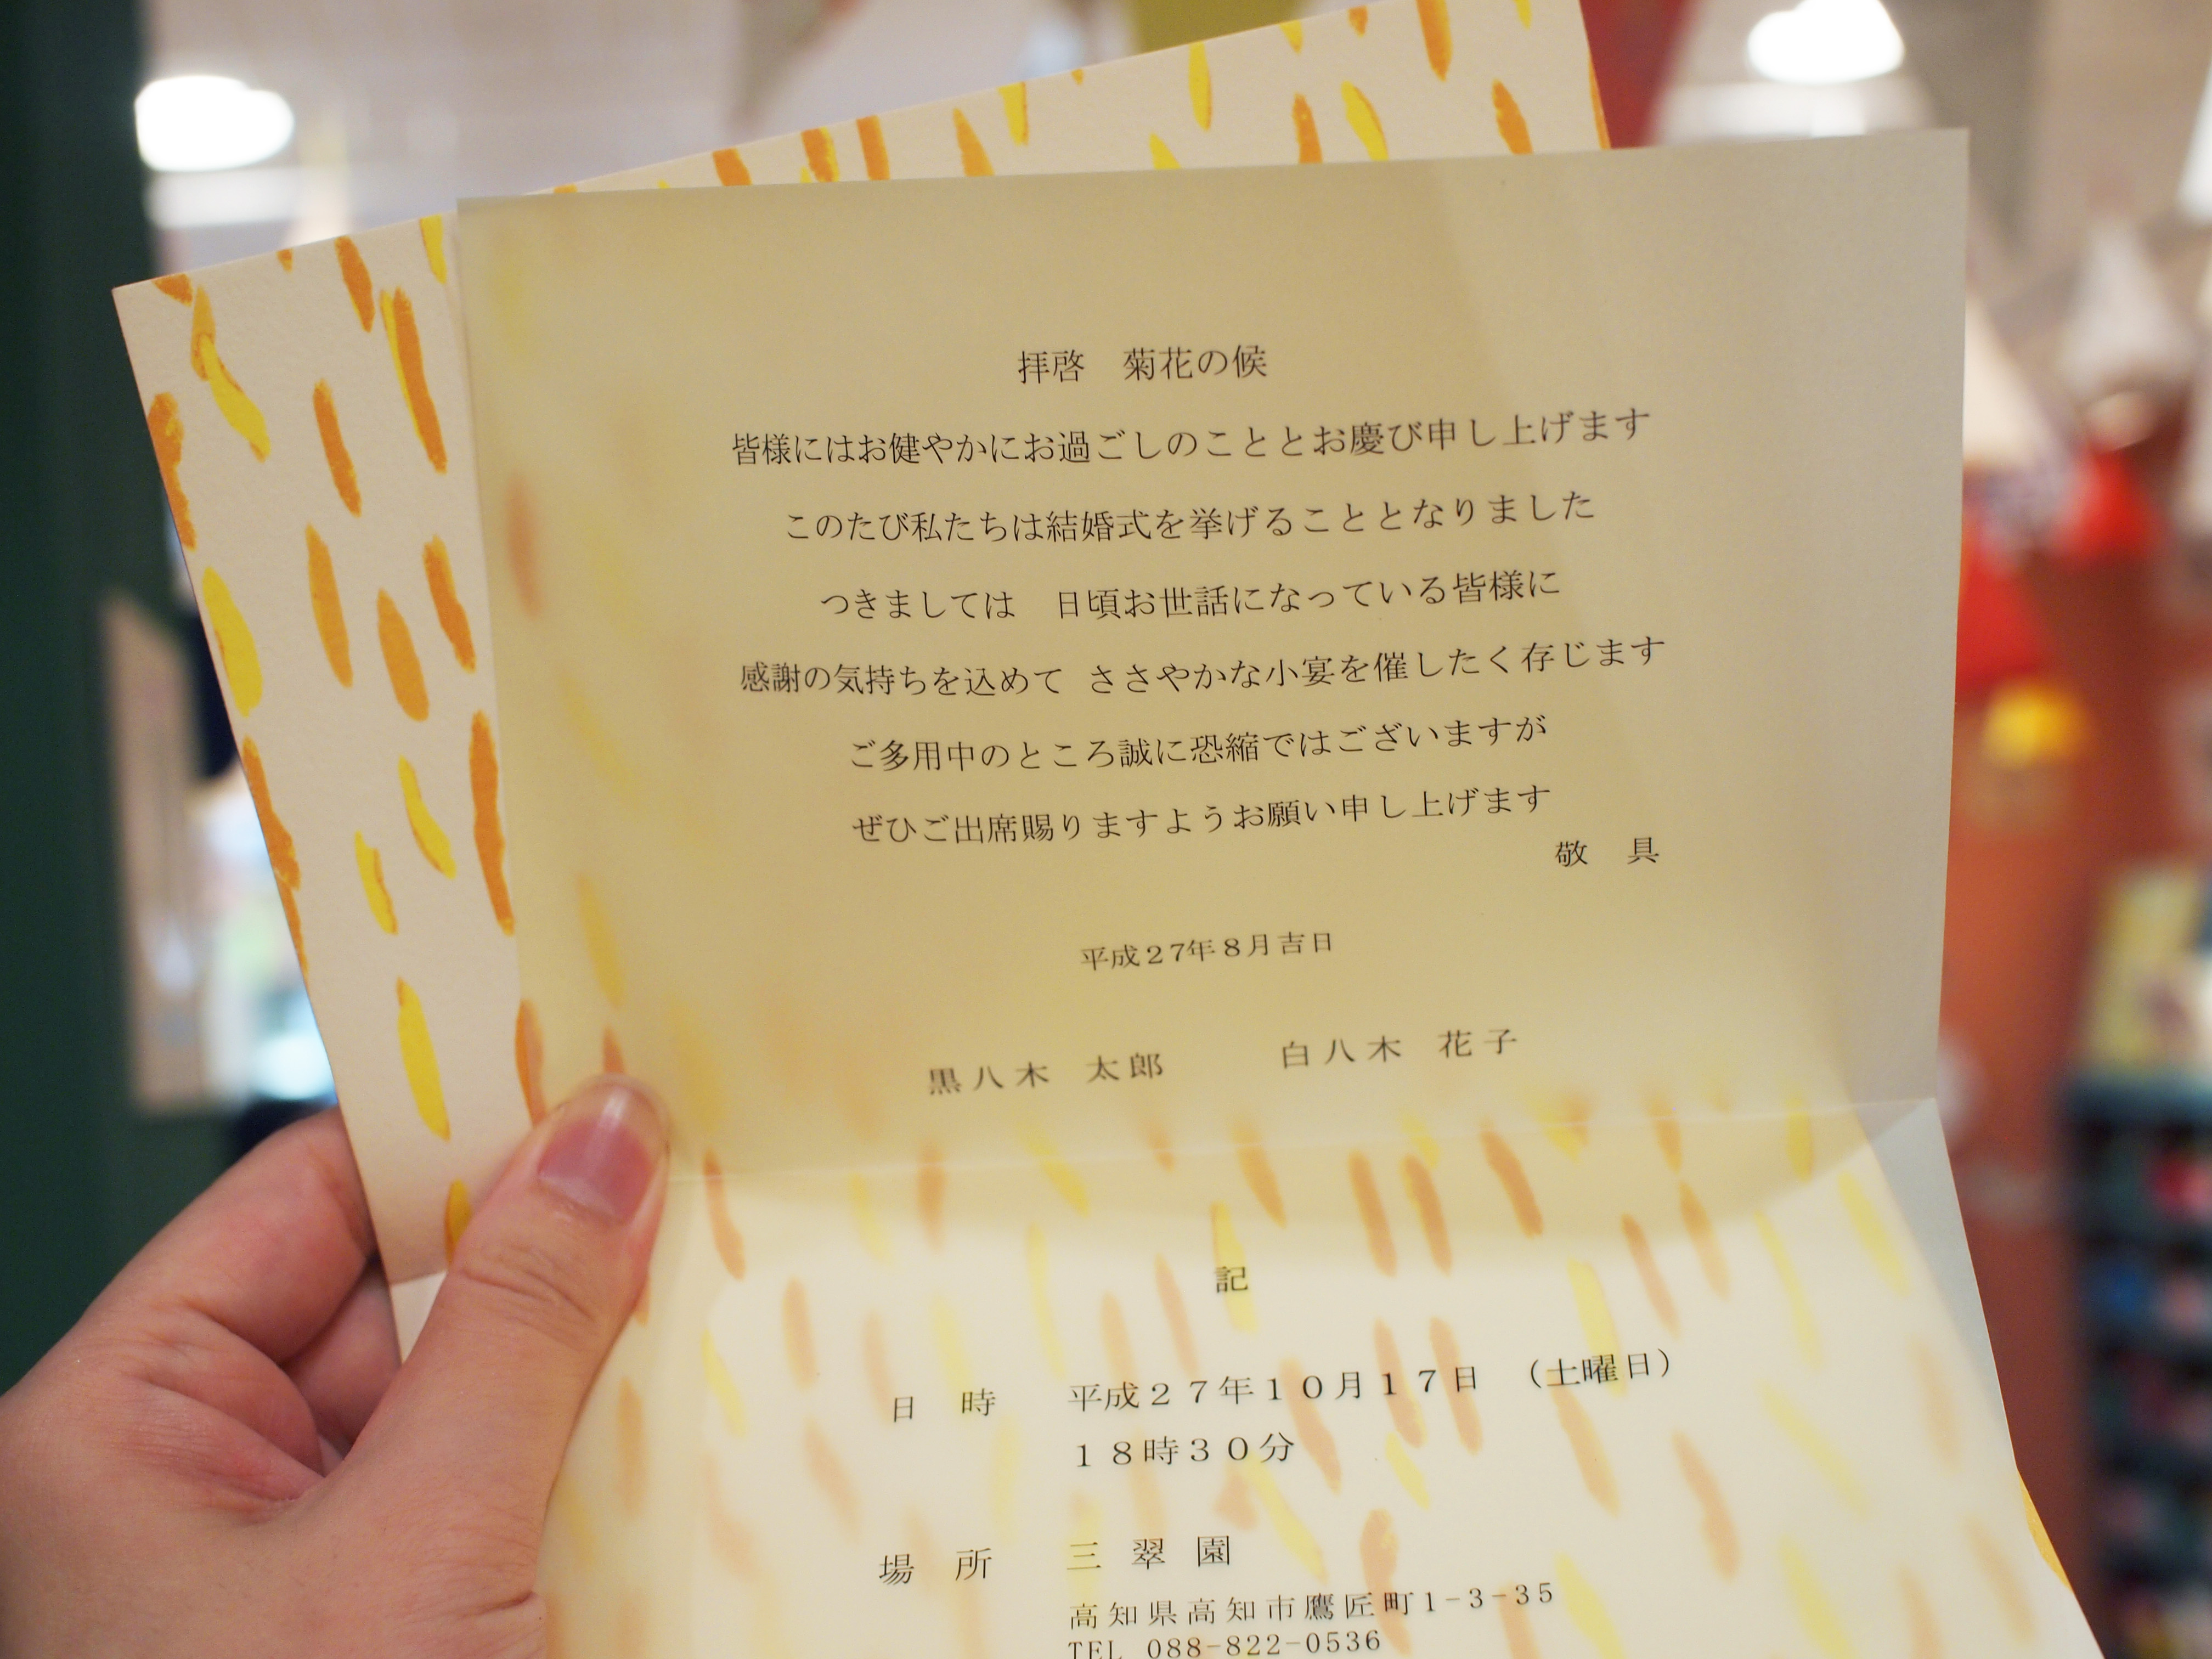 拝啓　菊花の候
皆様にはお健やかにお過ごしのこととお慶び申し上げます
このたび私たちは結婚式を挙げることとなりました
つきましては　日頃お世話になっている皆様に
感謝の気持ちを込めて ささやかな小宴を催したく存じます
ご多用中のところ誠に恐縮ではございますが
ぜひご出席賜りますようお願い申し上げます
敬　具
平成２７年８月吉日
黒八木　太郎　　　白八木　花子
記
日　時　　平成２７年１０月１７日　（土曜日）
１８時３０分
場　所　　三 翠 園
高知県高知市鷹匠町1-3-35
TEL 088-822-0536